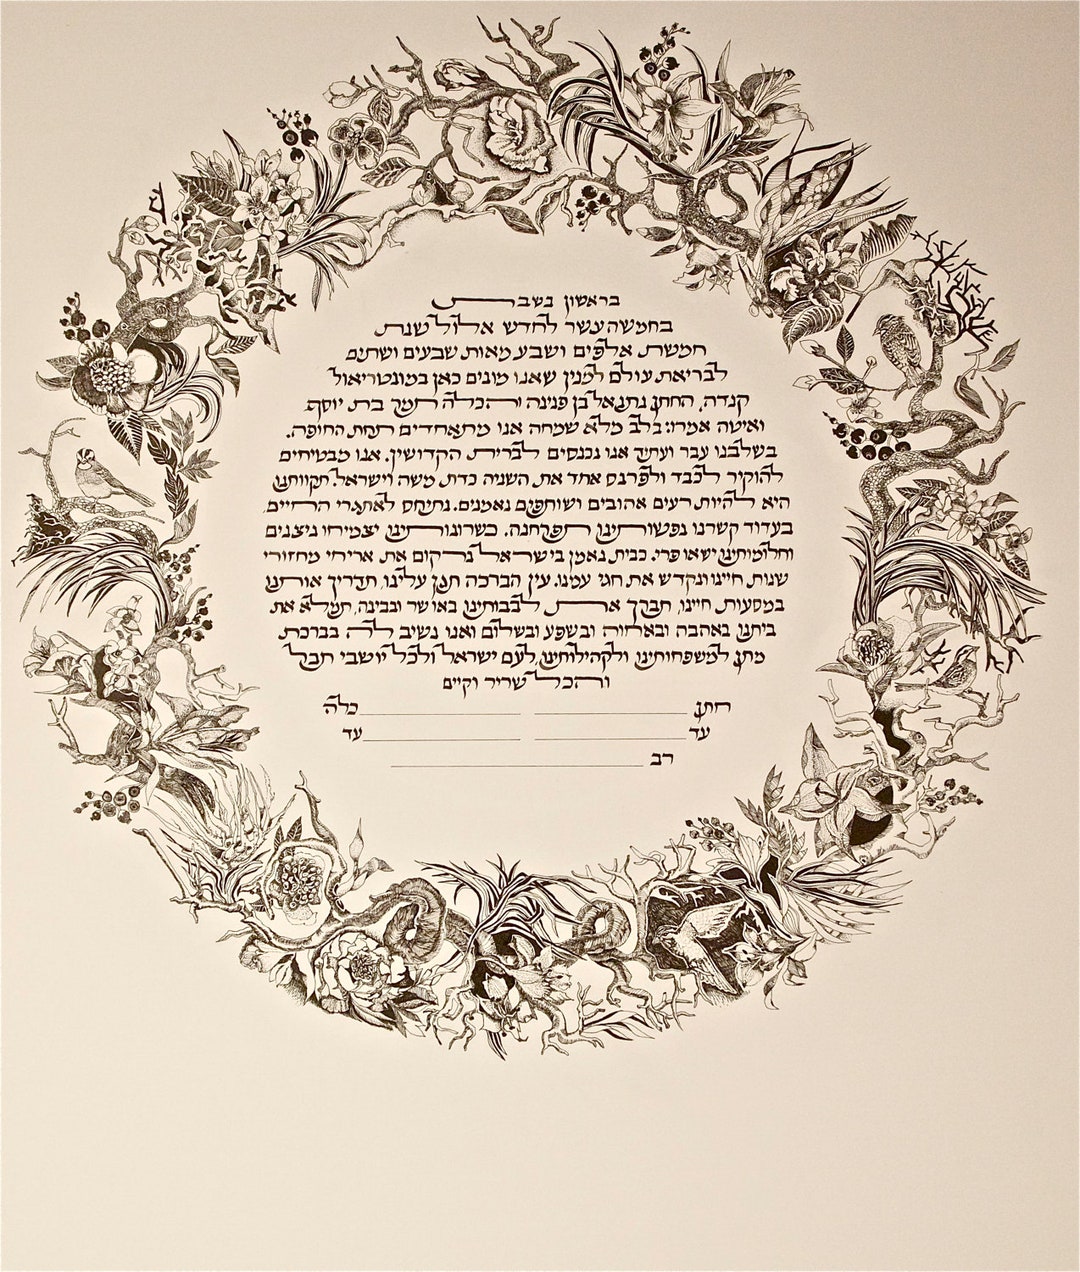 בראשון בשבת
בחמשה עשר לחדש אלול שנת
חמשת אלפים ושבע מאות שבעים ושתים
לבריאת עולם למנין שאנו מונים כאן במונטריאול
קנדה, החתן נתנאל בן פנינה והכלה תמר בת יוסף
ואיטה אמרו: בלב מלא שמחה אנו מתאחדים תחת החופה.
בשלבנו עבר ועתיד אנו נכנסים לברית הקדושין. אנו מבטיחים
להוקיר לכבד ולפרנס אחד את השניה כדת משה וישראל. תקוותנו
היא להיות רעים אהובים ושותפים נאמנים. נתיחס לאתגרי החיים,
בעדוד קשרנו נפשותינו תפרחנה. כשרונותינו יצמיחו ניצנים
וחלומותינו ישאו פרי. כבית נאמן בישראל נרקום את אריחי מחזורי
שנות חיינו ונקדש את חגי עמנו. עין הברכה תגן עלינו, תדריך אותנו
במסעות חיינו, תברך את לבבותינו באושר ובבינה, תמלא את
ביתנו באהבה ובאחוה ובשפע ובשלום ואנו נשיב לה בברכת
מתן למשפחותינו ולקהילותינו, לעם ישראל ולכל יושבי תבל
והכל שריר וקיים
חתן כלה
עד עד
רב